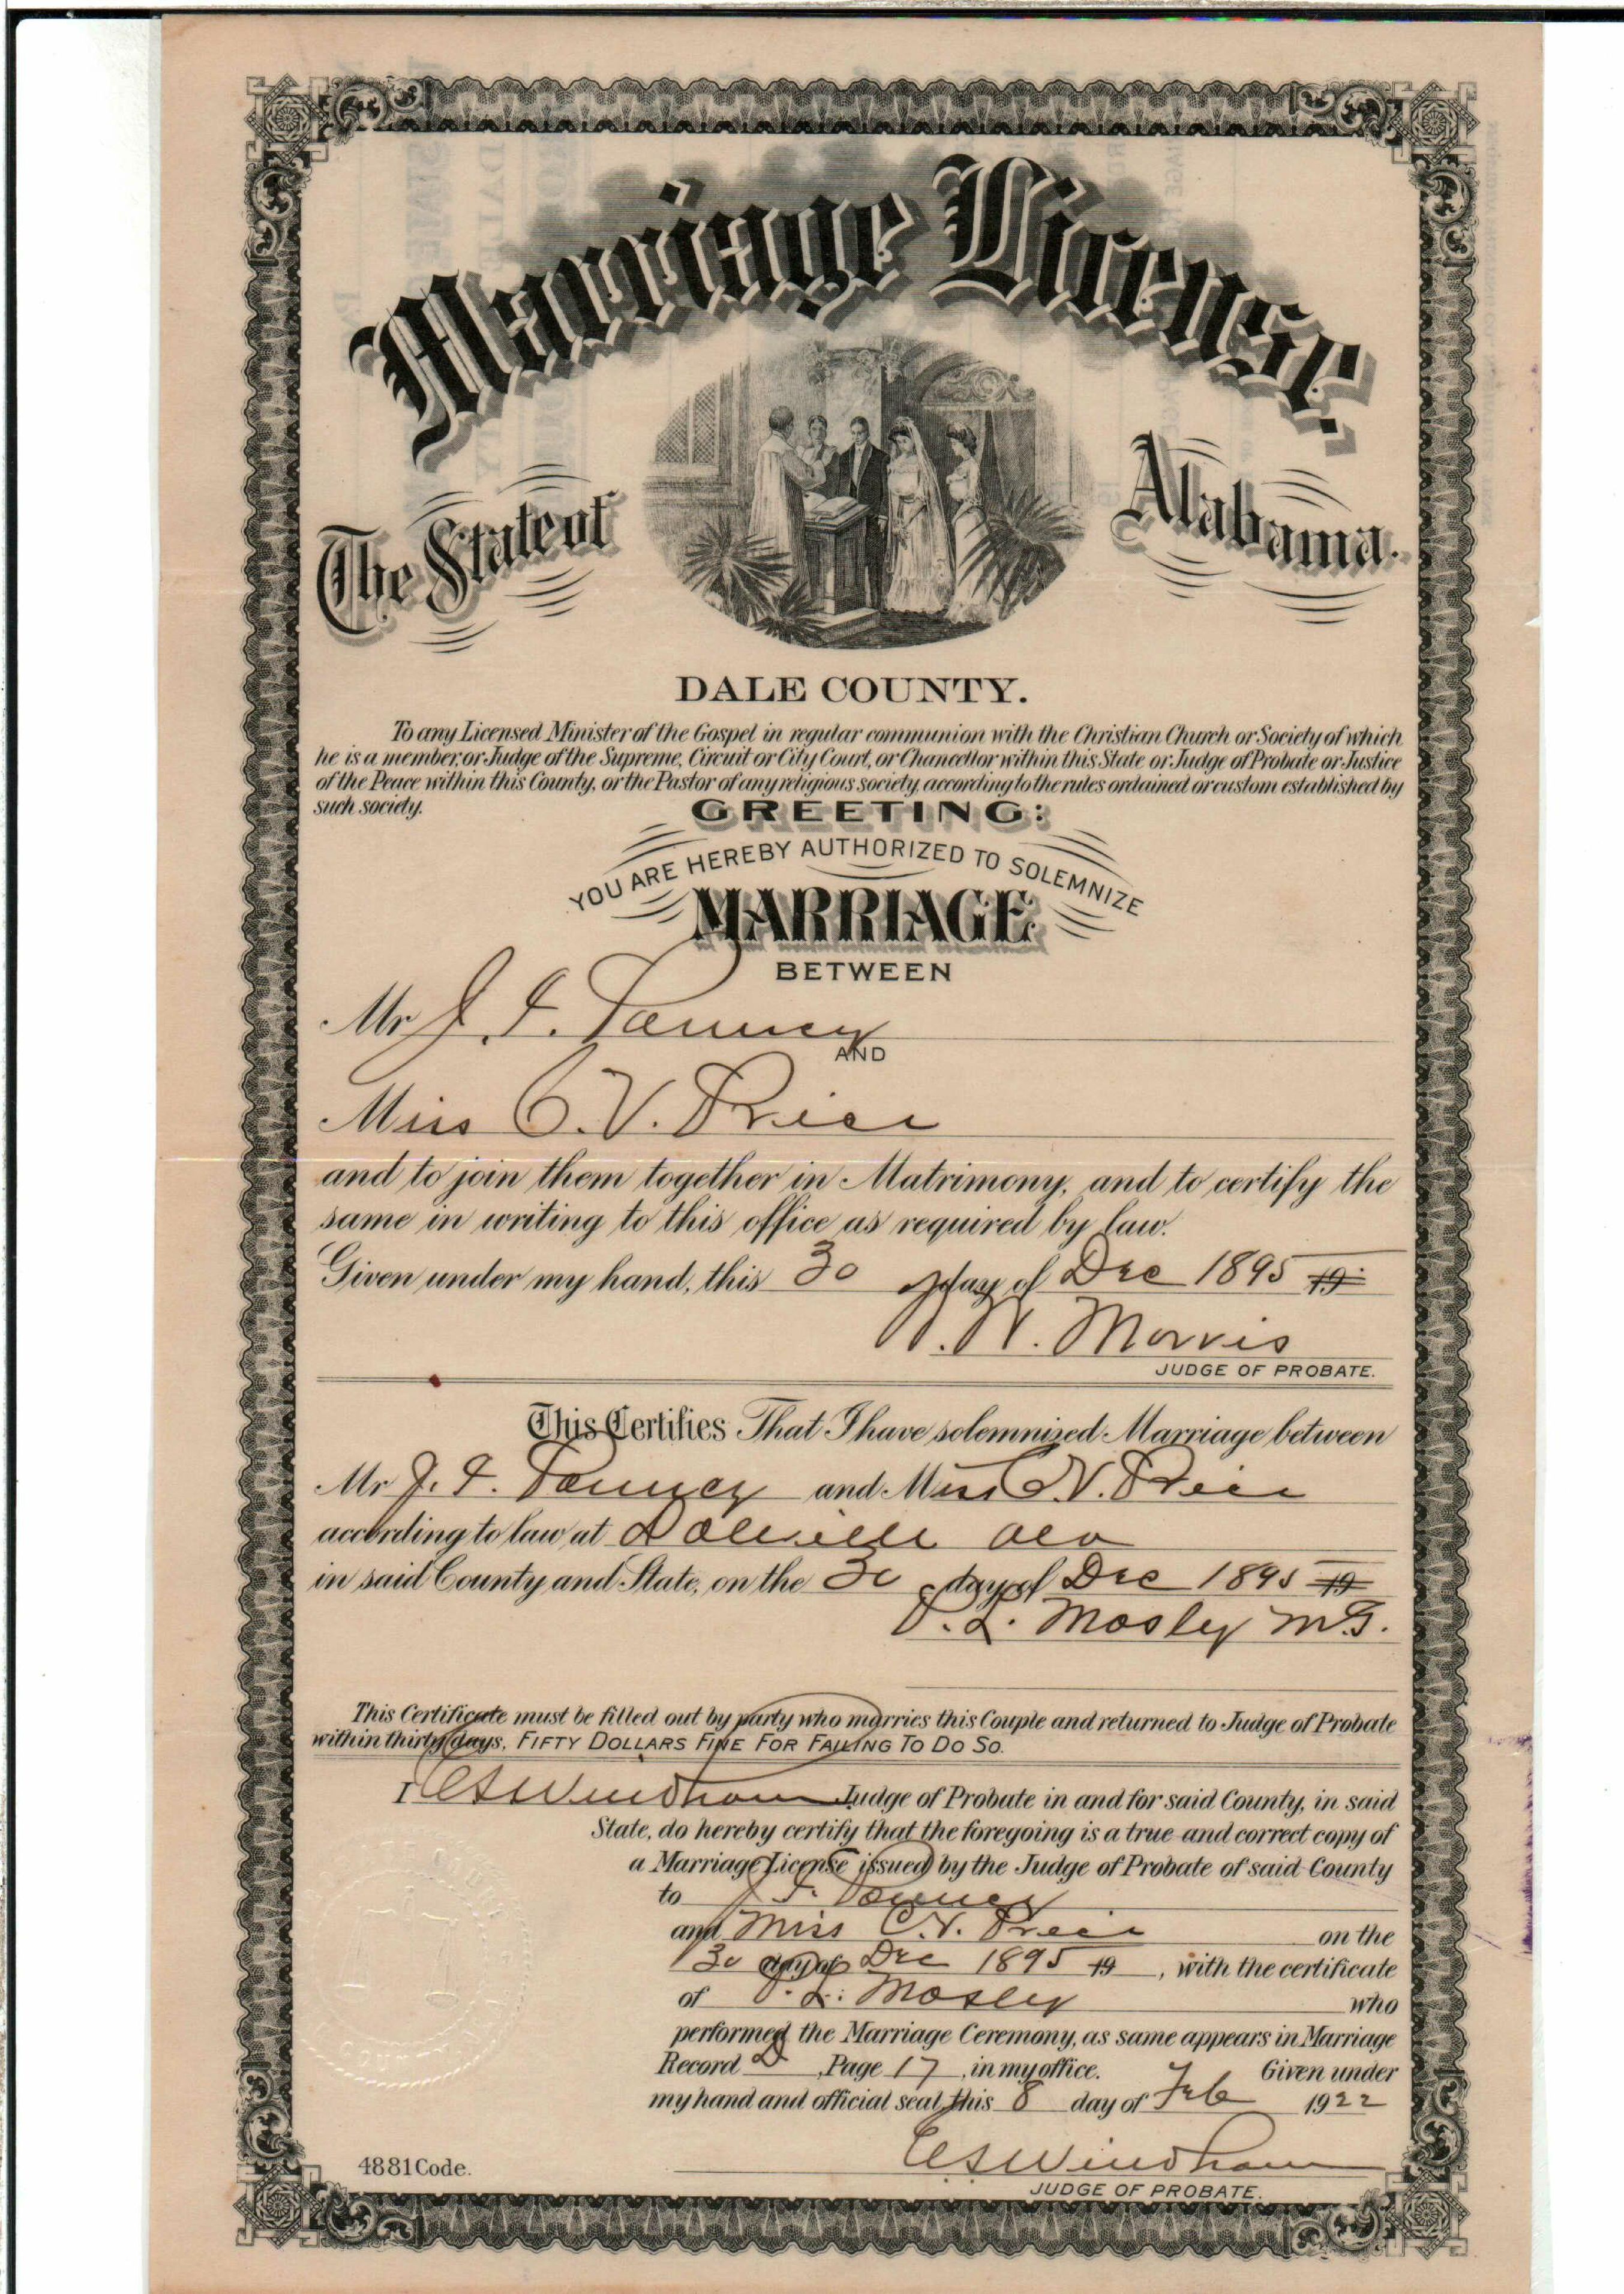 Marriage License.
The State of Alabama.
DALE COUNTY.
To any Licensed Minister of the Gospel in regular communion with the Christian Church or Society of which
he is a member, or Judge of the Supreme, Circuit or City Court, or Chancellor within this State or Judge of Probate or Justice
of the Peace within this County, or the Pastor of any religious society, according to the rules ordained or custom established by
such society.
GREETING:
YOU ARE HEREBY AUTHORIZED TO SOLEMNIZE
MARRIAGE
BETWEEN
Mr J. F.
AND
Miss C. V. Price
and to join them together in Matrimony, and to certify the
same in writing to this office as required by law.
Given under my hand, this 30 day of Dec 1895 19
W. Morris
JUDGE OF PROBATE.
This Certifies That I have solemnized Marriage between
Mr J. F. and Miss C. V. Price
according to law at Ala
in said County and State, on the 30 day of Dec 1895 19
P. L. Mosley M.G.
This Certificate must be filled out by party who marries this Couple and returned to Judge of Probate
within thirty days, FIFTY DOLLARS FINE FOR FAILING TO DO SO.
I Windham Judge of Probate in and for said County, in said
State, do hereby certify that the foregoing is a true and correct copy of
a Marriage License issued by the Judge of Probate of said County
to J. F.
and Miss C. V. Price on the
30 day of Dec 1895 19 , with the certificate
of P. L. Mosley who
performed the Marriage Ceremony, as same appears in Marriage
Record D , Page 17 , in my office. Given under
my hand and official seal, this 8 day of Feb 1922
Windham
JUDGE OF PROBATE.
4881 Code.